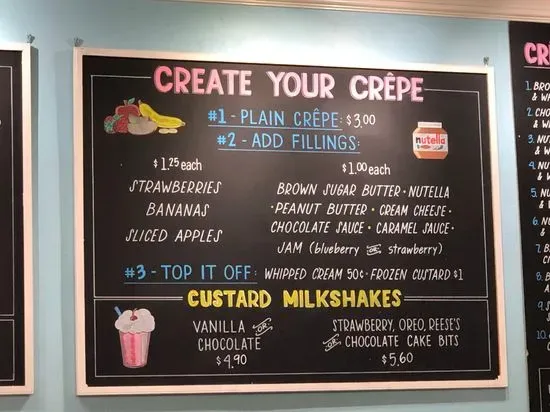 CREATE YOUR CRÊPE
#1 - PLAIN CRÊPE: $3.00
#2 - ADD FILLINGS:
nutella
$1.25 each
STRAWBERRIES
BANANAS
SLICED APPLES
$1.00 each
BROWN SUGAR BUTTER • NUTELLA
• PEANUT BUTTER • CREAM CHEESE •
CHOCOLATE SAUCE • CARAMEL SAUCE •
JAM (blueberry OR strawberry)
#3 - TOP IT OFF: WHIPPED CREAM 50¢ • FROZEN CUSTARD $1
CUSTARD MILKSHAKES
VANILLA OR
CHOCOLATE
$4.90
STRAWBERRY, OREO, REESE'S
OR CHOCOLATE CAKE BITS
$5.60
CR
1. BRO
& W
2. CHO
& W
3. NU
4. NU
5. NU
6. NU
7. B
8. B
9. S
10.